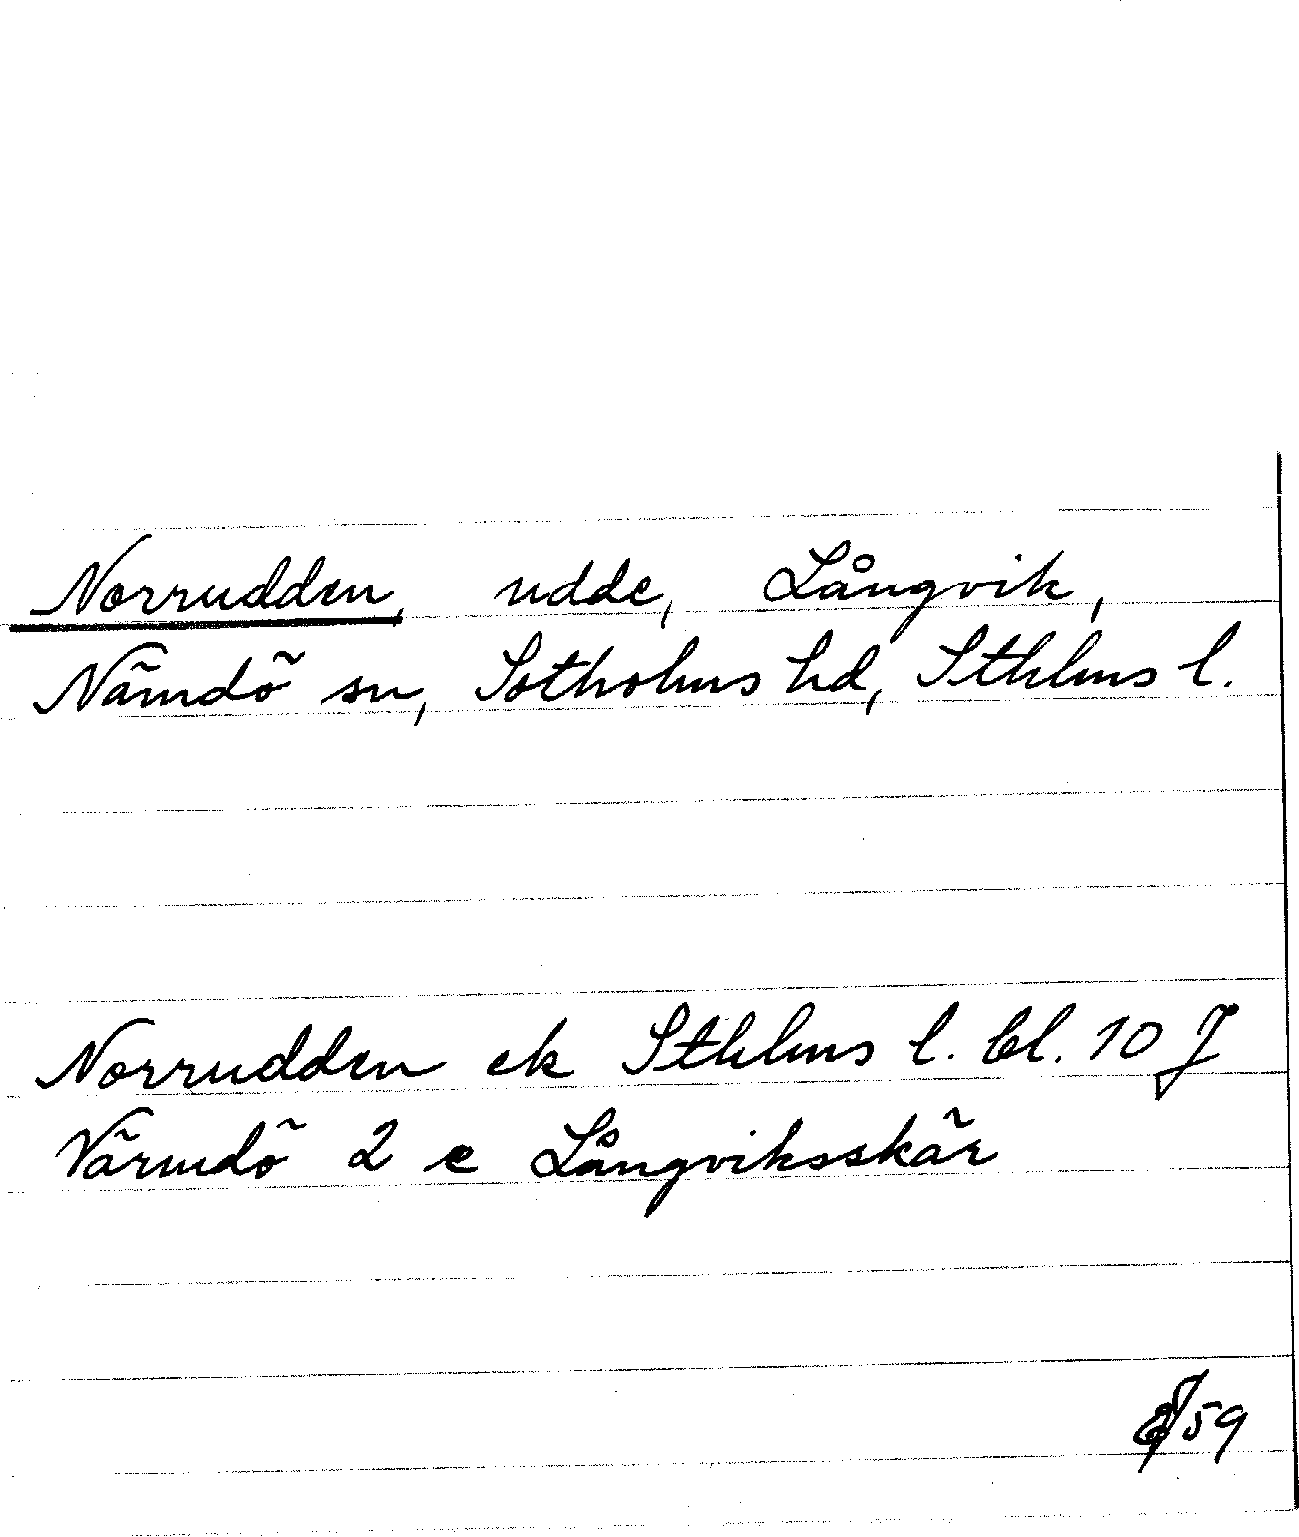 Norrudden, udde, Långvik,
Nämdö sn, Sotholms hd, Sthlms l.
Norrudden ek Sthlms l. bl. 10 J
Värmdö 2 e Långviksskär
59